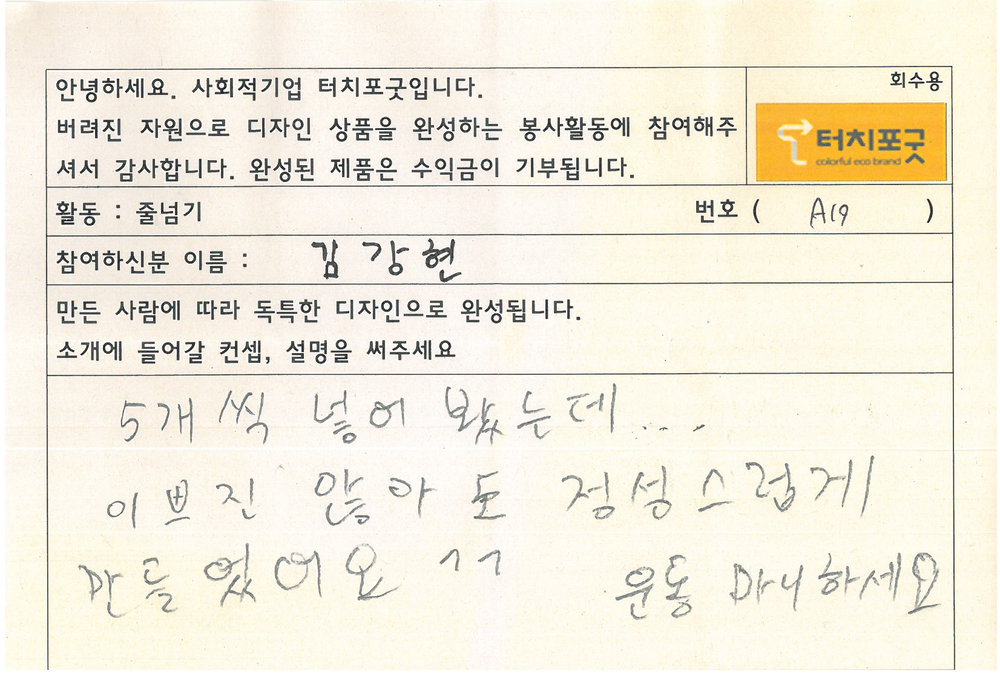 안녕하세요. 사회적기업 터치포굿입니다.
버려진 자원으로 디자인 상품을 완성하는 봉사활동에 참여해주
셔서 감사합니다. 완성된 제품은 수익금이 기부됩니다.
회수용
터치포굿
colorful eco brand
활동 : 줄넘기
번호 ( A19 )
참여하신분 이름 : 김강현
만든 사람에 따라 독특한 디자인으로 완성됩니다.
소개에 들어갈 컨셉, 설명을 써주세요
5개씩 넣어 봤는데...
이쁘진 않아도 정성스럽게
만들었어요 ^^ 운동 마니하세요